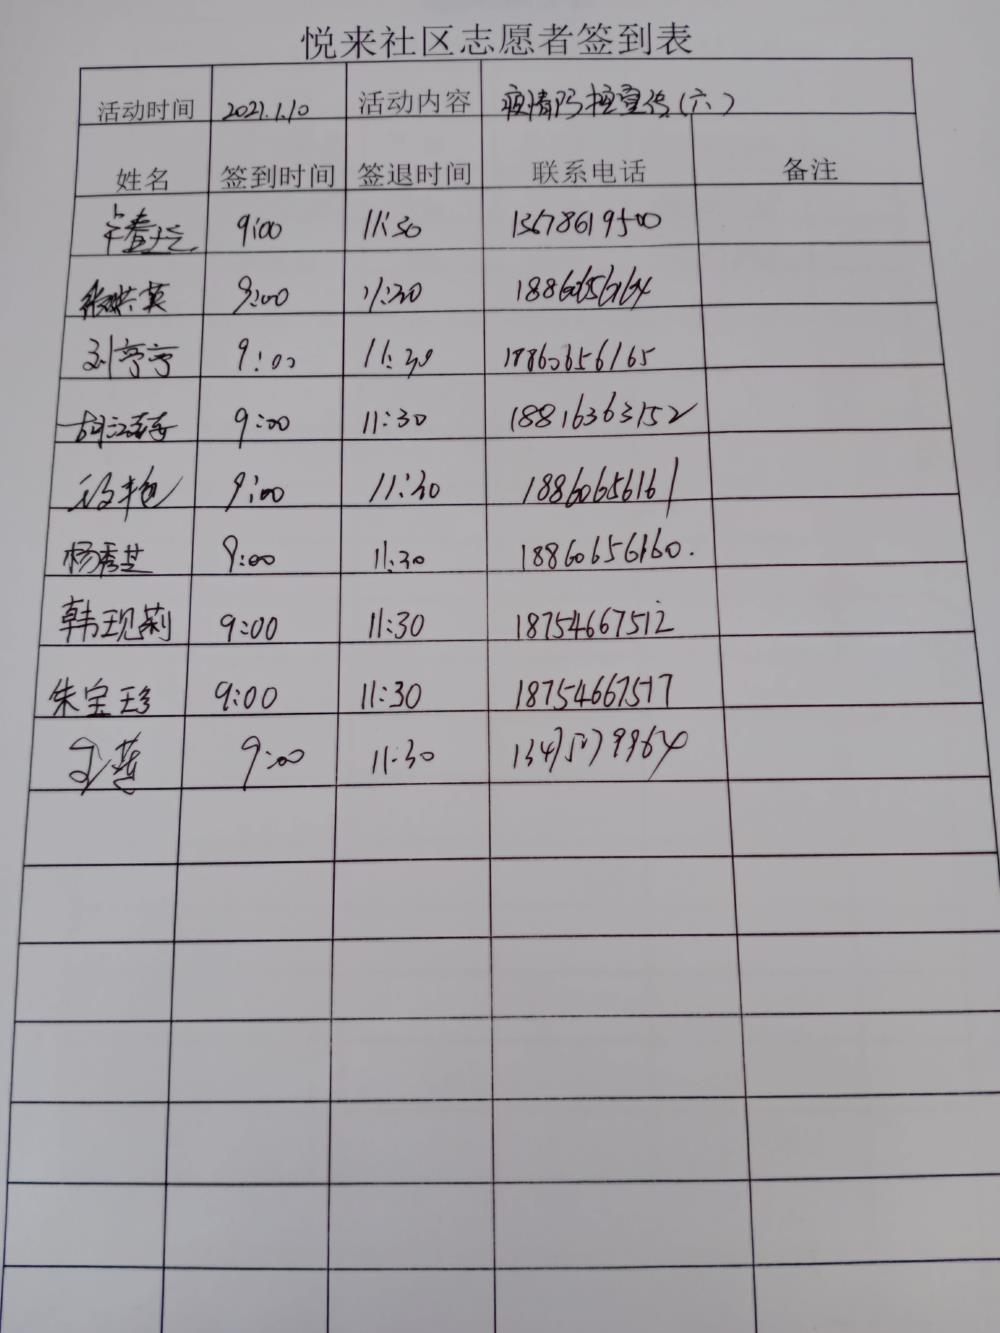 悦来社区志愿者签到表
活动时间 2021.1.10 活动内容 疫情防控宣传(六)
姓名 签到时间 签退时间 联系电话 备注
9:00 11:30 13678619500
张洪英 9:00 11:30 18860656164
刘亭亭 9:00 11:30 18860656165
9:00 11:30 18816363152
9:00 11:30 18860656161
杨秀芝 9:00 11:30 18860656160.
韩现莉 9:00 11:30 18754667512
朱宝珍 9:00 11:30 18754667517
9:00 11:30